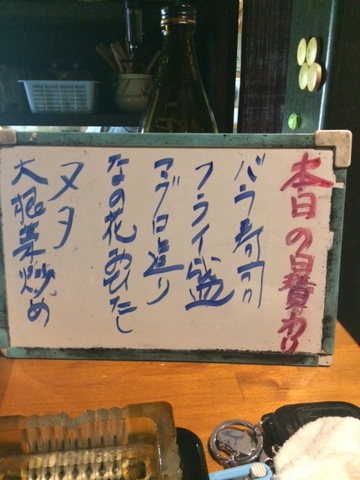 本日の自慢力り
バラ寿司
フライ盛
マグロ造り
なの花おひたし
ヌタ
大根葉炒め